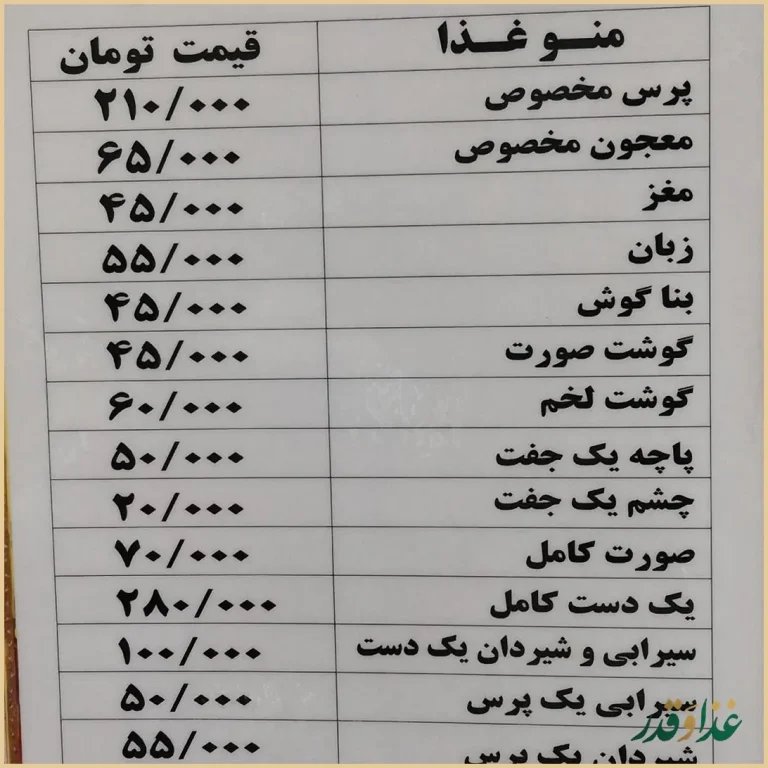 منو غذا قیمت تومان
پرس مخصوص ۲۱۰/۰۰۰
معجون مخصوص ۶۵/۰۰۰
مغز ۴۵/۰۰۰
زبان ۵۵/۰۰۰
بنا گوش ۴۵/۰۰۰
گوشت صورت ۴۵/۰۰۰
گوشت لخم ۶۰/۰۰۰
پاچه یک جفت ۵۰/۰۰۰
چشم یک جفت ۲۰/۰۰۰
صورت کامل ۷۰/۰۰۰
یک دست کامل ۲۸۰/۰۰۰
سیرابی و شیردان یک دست ۱۰۰/۰۰۰
سیرابی یک پرس ۵۰/۰۰۰
شیردان یک پرس ۵۵/۰۰۰
غذا و قدر